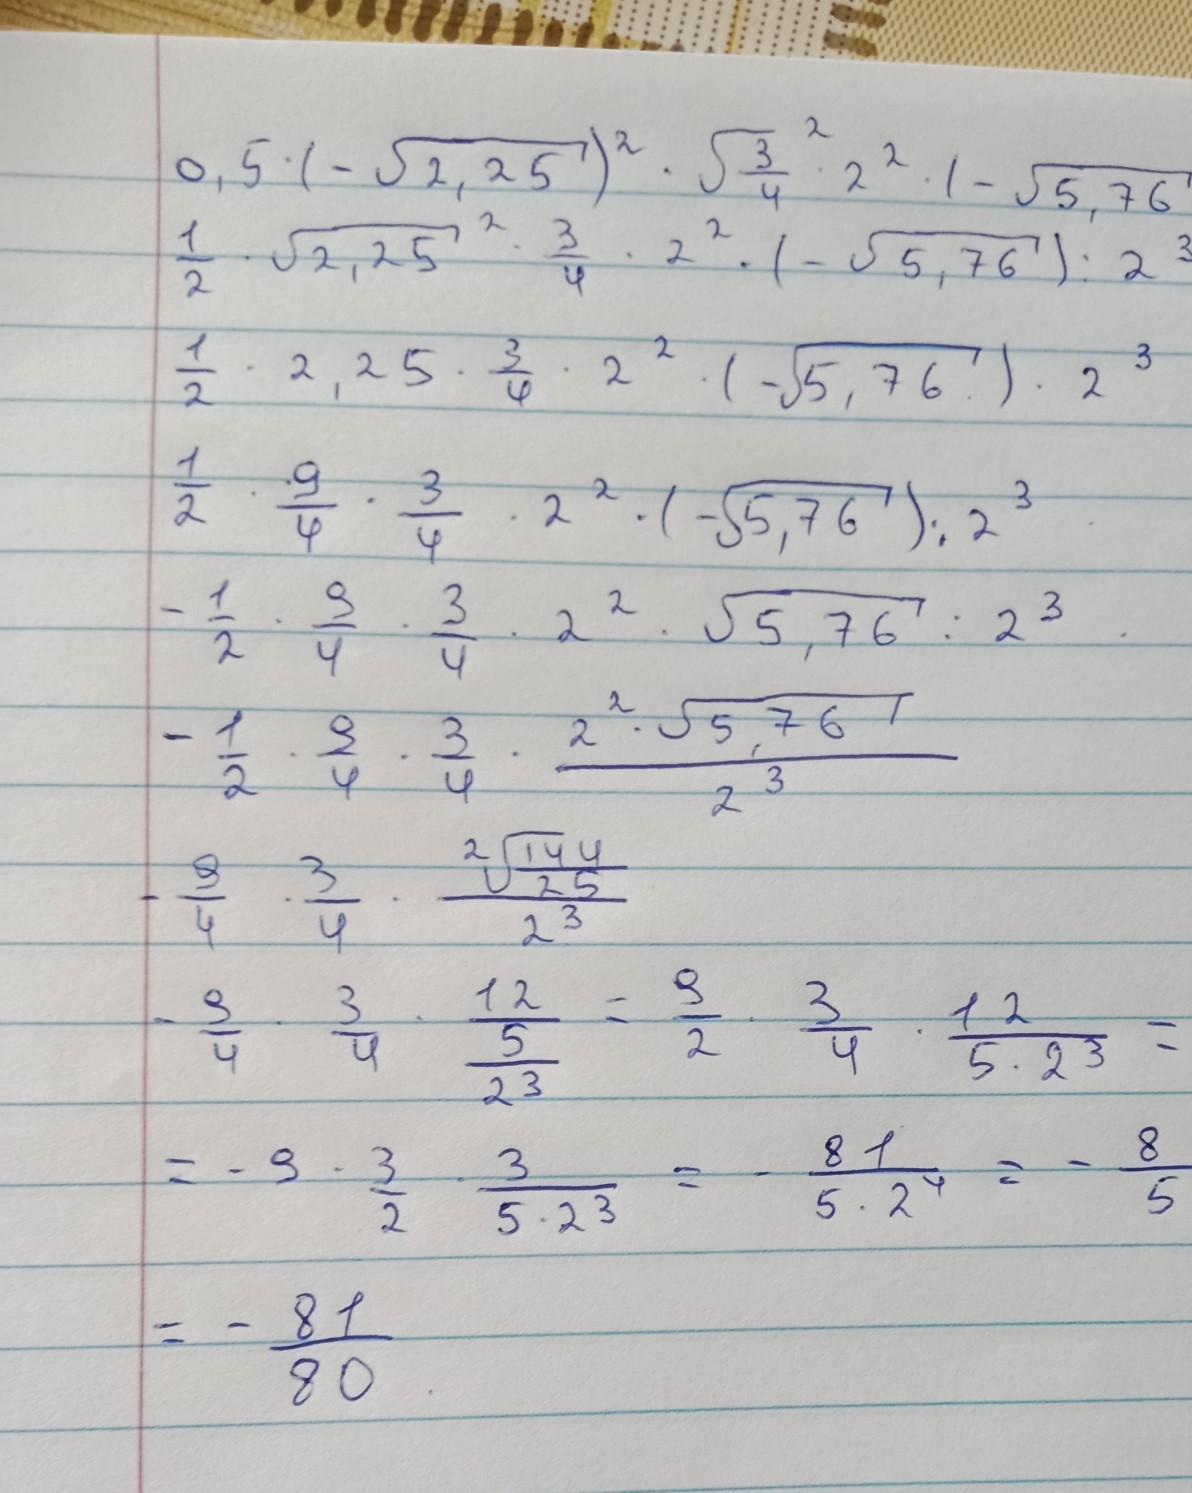 0,5·(-√2,25)² · √3/4² · 2² · (-√5,76
1/2 · √2,25² · 3/4 · 2² · (-√5,76) : 2³
1/2 · 2,25 · 3/4 · 2² · (-√5,76) · 2³
1/2 · 9/4 · 3/4 · 2² · (-√5,76) : 2³
-1/2 · 9/4 · 3/4 · 2² · √5,76 : 2³
-1/2 · 9/4 · 3/4 · (2² · √5,76)/2³
-9/4 · 3/4 · (2√144/25)/2³
-9/4 · 3/4 · (12/5)/2³ = 9/2 · 3/4 · 12/(5·2³) =
= -9 · 3/2 · 3/(5·2³) = -81/(5·2⁴) = -8/5
= -81/80